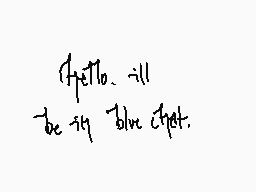 Hello. ill
be in blue chat.